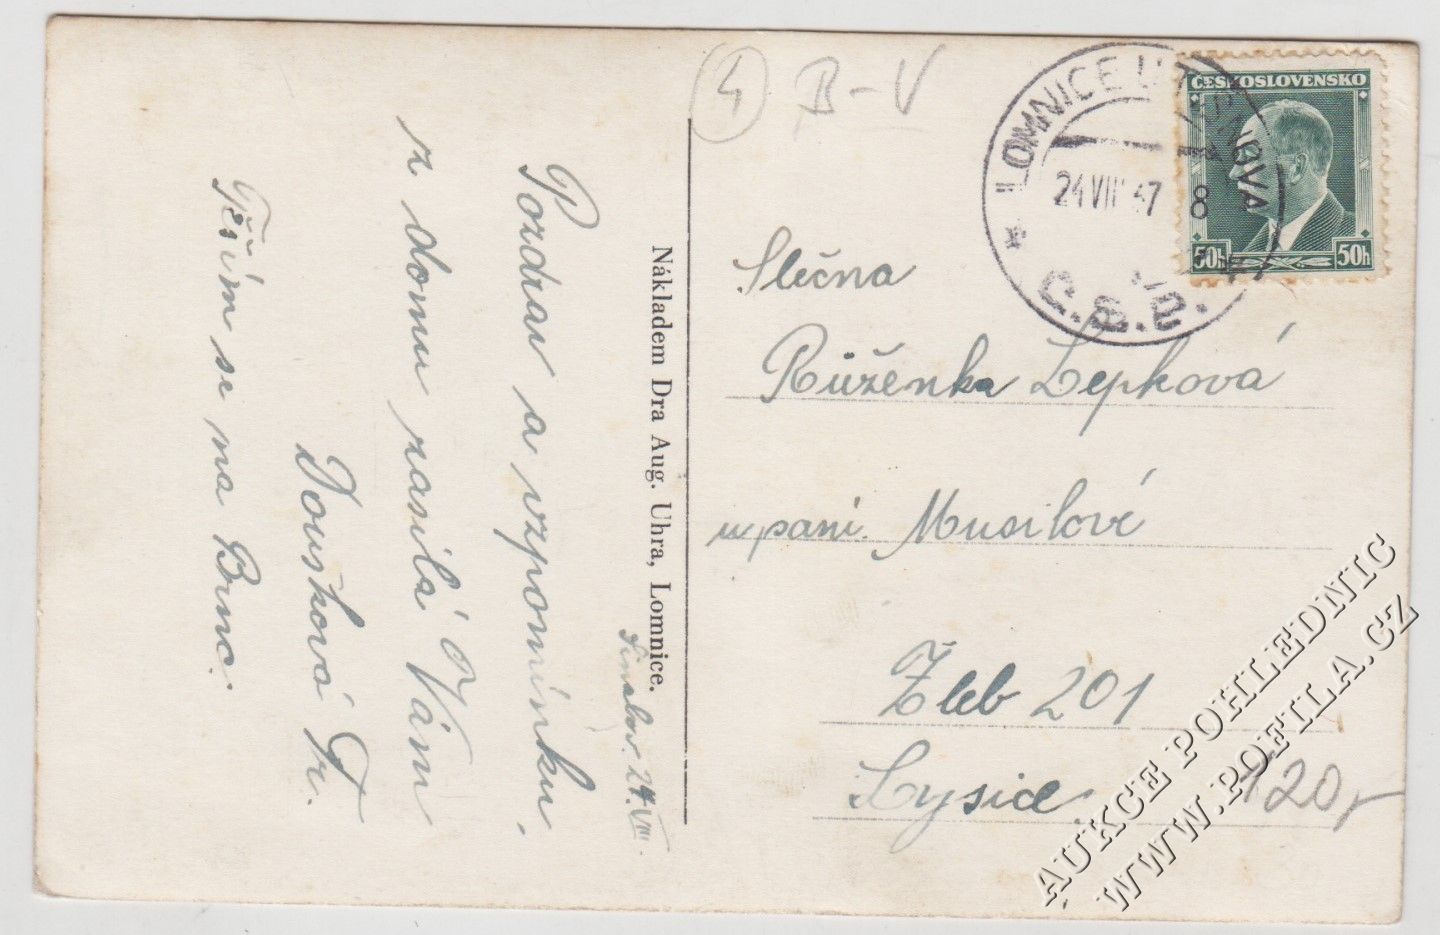 4 B-V
Pozdrav a vzpomínku,
z domu zasílá Vám
Doušková Fr.
Těším se na Brno.
Nákladem Dra Aug. Uhra, Lomnice.
24.VIII.
LOMNICE U TIŠNOVA
24 VIII 37 8
Č.S.P.
ČESKOSLOVENSKO
50h 50h
Slečna
Růženka Lepková
u paní Musilové
Žleb 201
Lysice.
120,-
AUKCE POHLEDNIC
WWW.POFILA.CZ